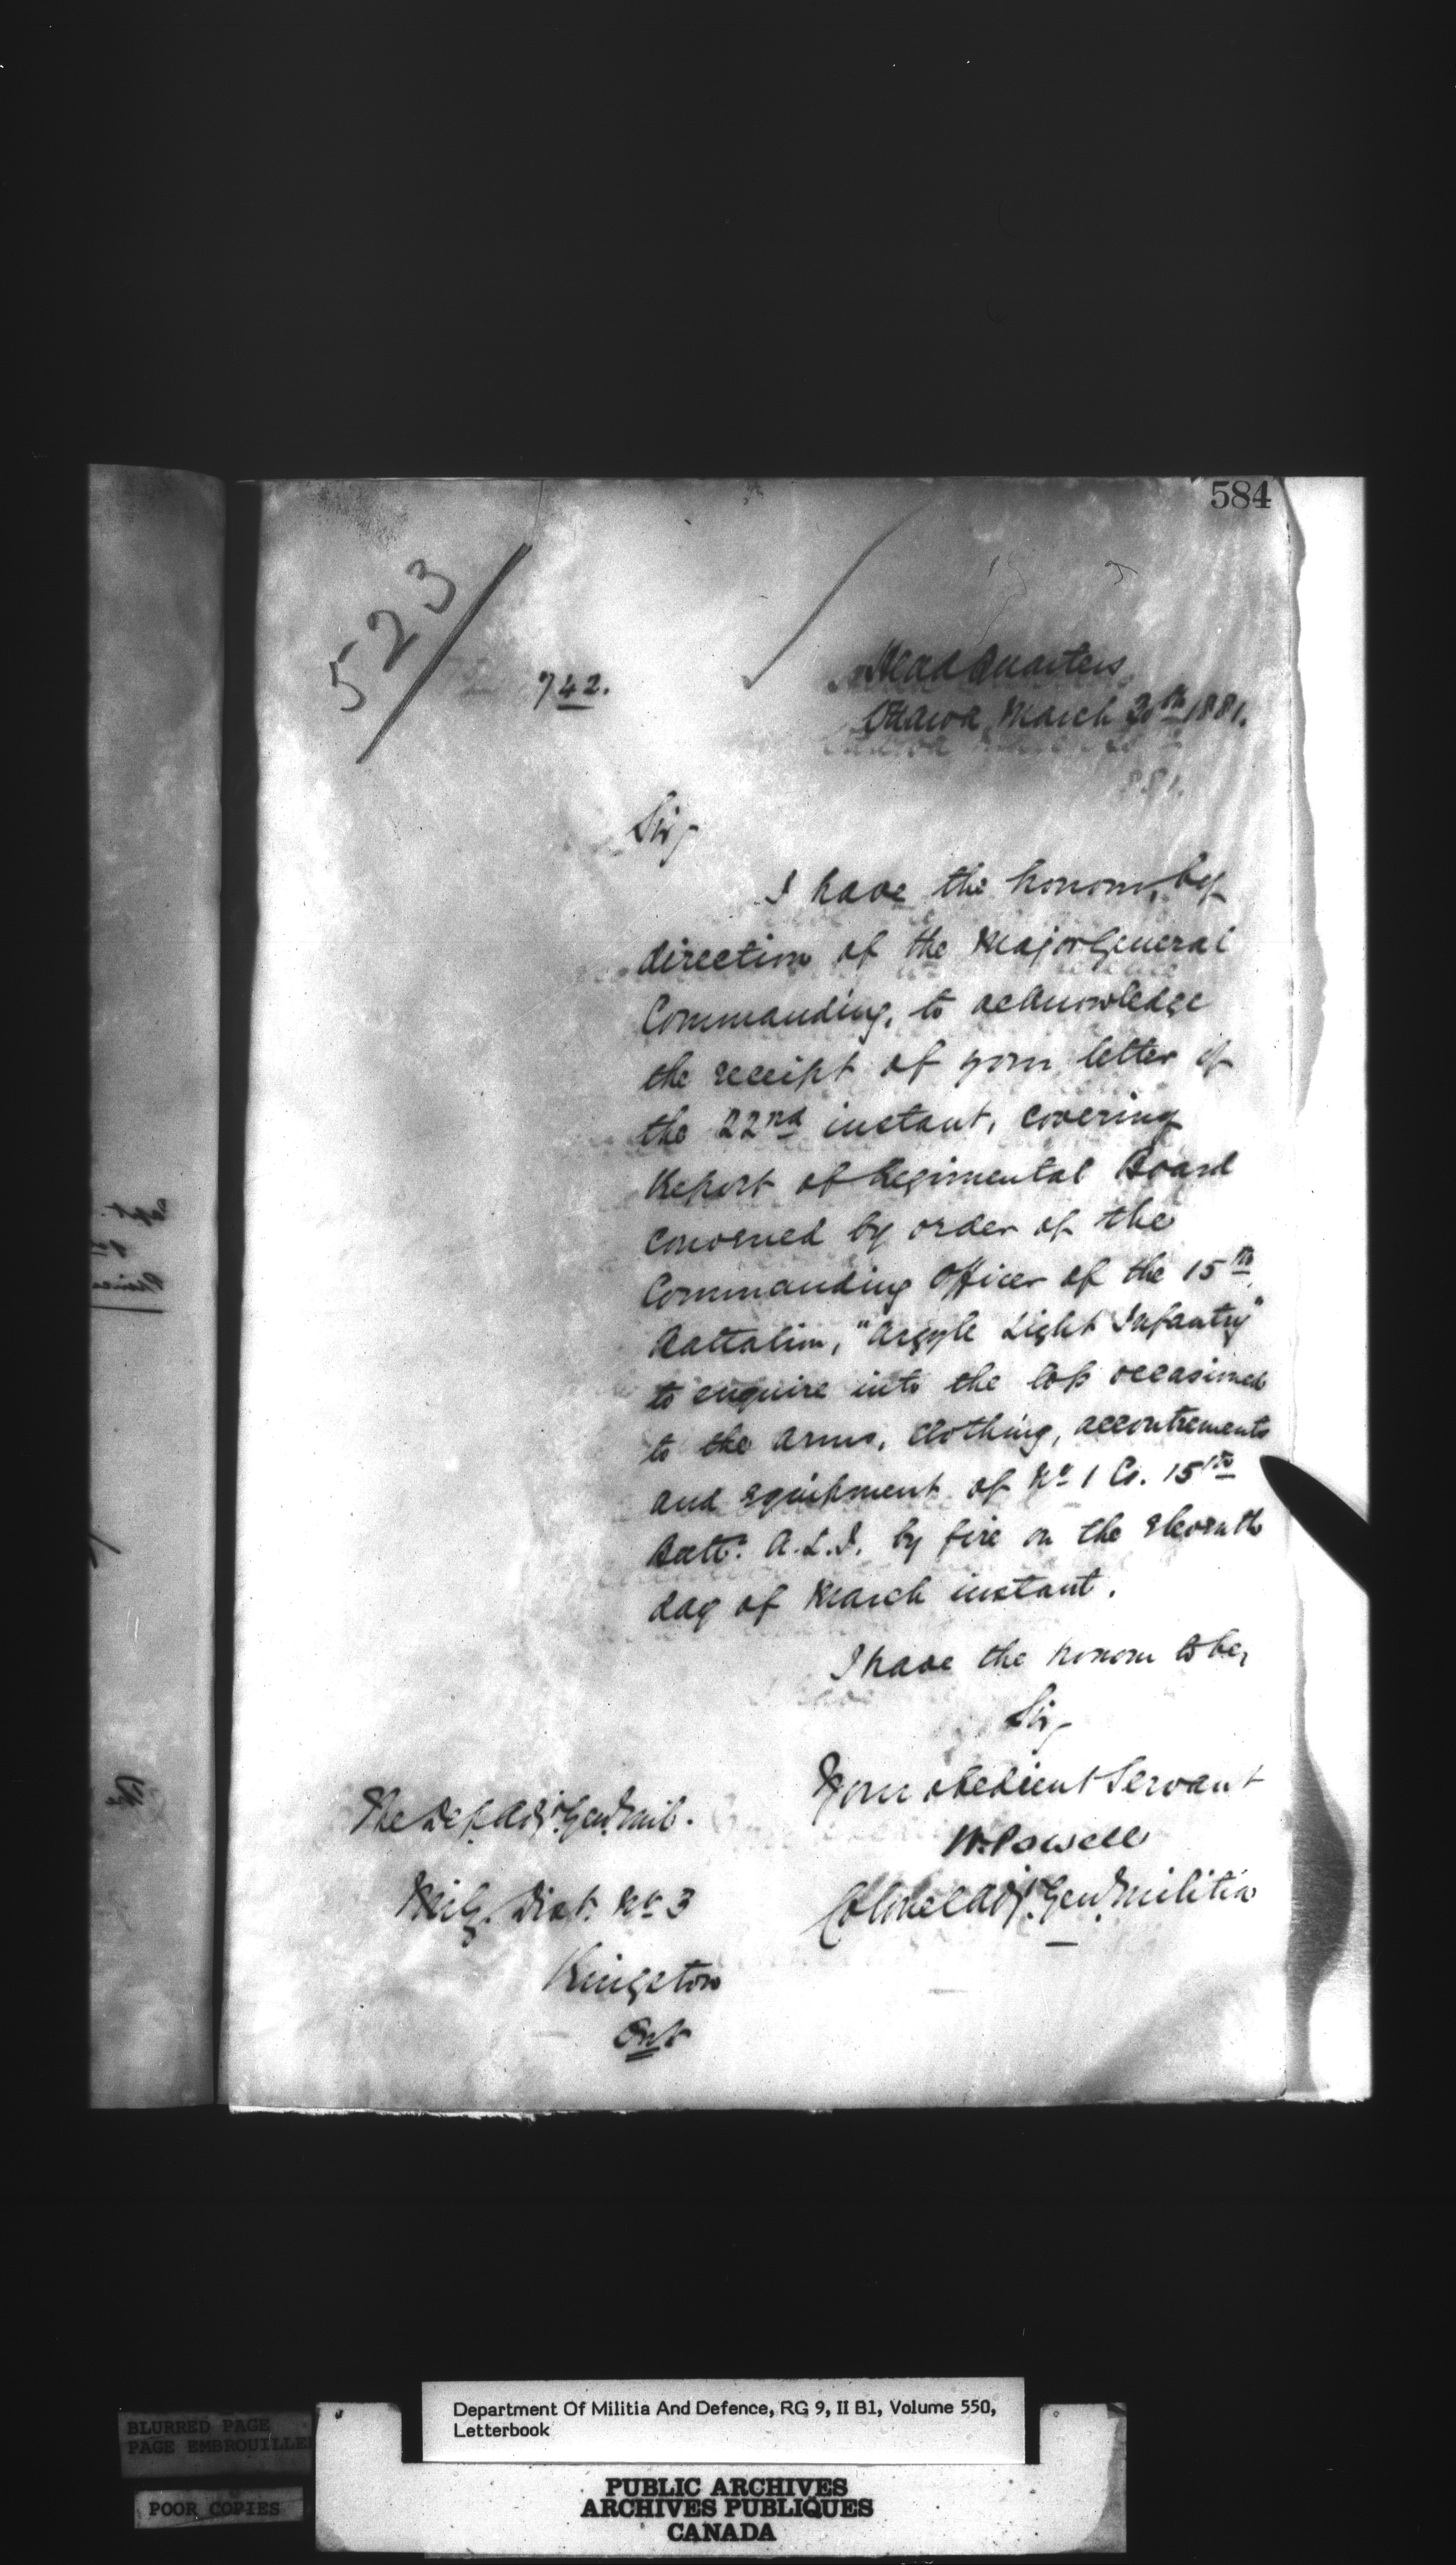 584
523
742.
Head Quarters
Ottawa, March 30th 1881.
Sir,
I have the honour, by
direction of the Major General
Commanding, to acknowledge
the receipt of your letter of
the 22nd instant, covering
Report of Regimental Board
convened by order of the
Commanding Officer of the 15th
Battalion, "Argyle Light Infantry"
to enquire into the loss occasioned
to the arms, clothing, accoutrements
and equipment of No 1 Co. 15th
Batt. A.L.I. by fire on the eleventh
day of March instant.
I have the honour to be,
Sir,
Your obedient Servant
W. Powell
Colonel Adjt. Genl. Militia
The Dep. Adjt. Genl. Mil.
Mily. Dist. No 3
Kingston
Ont
Department Of Militia And Defence, RG 9, II B1, Volume 550,
Letterbook
BLURRED PAGE
PAGE EMBROUILLE
POOR COPIES
PUBLIC ARCHIVES
ARCHIVES PUBLIQUES
CANADA